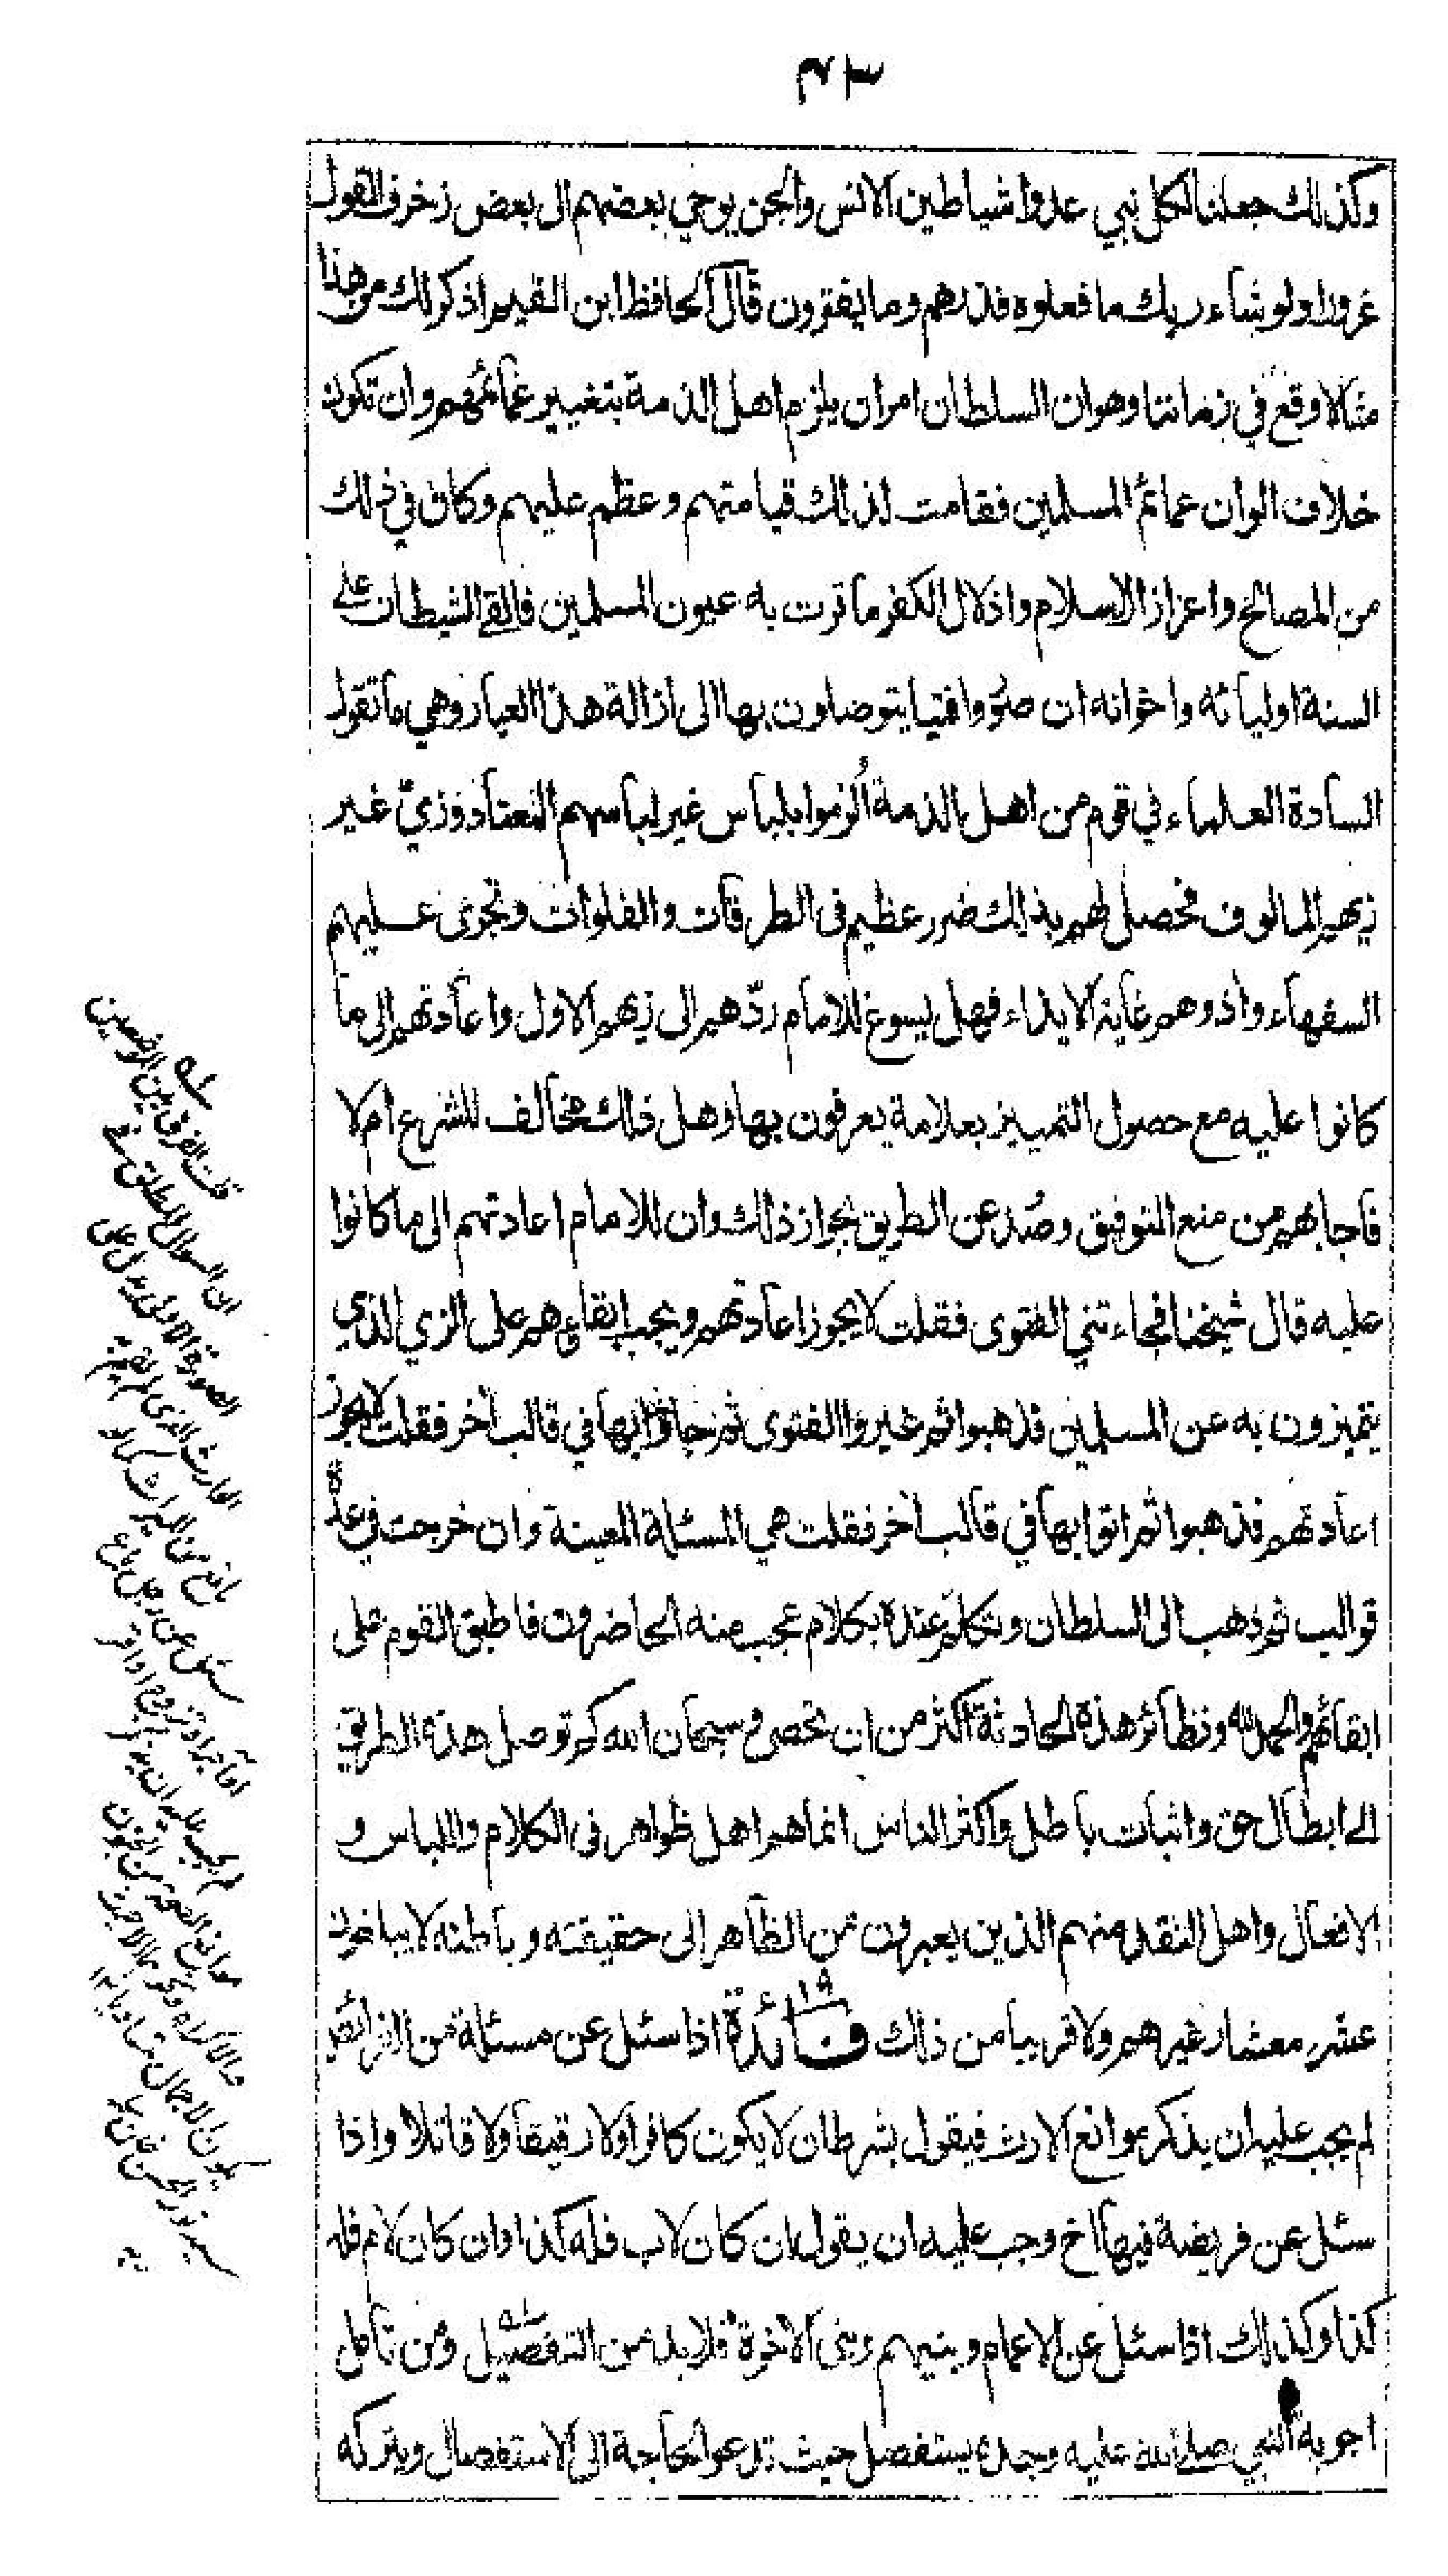 ٤٣
وكذلك جعلنا لكل نبي عدوا شياطين الانس والجن يوحي بعضهم الى بعض زخرف القول
غرورا ولو شاء ربك ما فعلوه فذرهم وما يفترون قال الحافظ ابن القيم اذكر لك من هذا
مثالا وقع في زماننا وهو ان السلطان امر ان يلزم اهل الذمة بتغيير عمائمهم وان تكون
خلاف الوان عمائم المسلمين فقامت لذلك قيامتهم وعظم عليهم وكان في ذلك
من المصالح واعزاز الاسلام واذلال الكفر ما قرت به عيون المسلمين فالقى الشيطان على
السنة اوليائه واخوانه ان صوروا فتيا يتوصلون بها الى ازالة هذا الغيار وهي ما تقول
السادة العلماء في قوم من اهل الذمة اُلزموا بلباس غير لباسهم المعتاد وزيّ غير
زيهم المالوف فحصل لهم بذلك ضرر عظيم في الطرقات والفلوات وتجرى عليهم
السفهاء واذوهم غاية الايذاء فهل يسوغ للامام ردّهم الى زيهم الاول واعادتهم الى ما
كانوا عليه مع حصول التمييز بعلامة يعرفون بها وهل ذلك مخالف للشرع ام لا
فاجابهم من منع التوفيق وصُد عن الطريق بجواز ذلك وان للامام اعادتهم الى ما كانوا
عليه قال شيخنا فجاءتني الفتوى فقلت لا يجوز اعادتهم ويجب ابقاؤهم على الزي الذي
يتميزون به عن المسلمين فذهبوا ثم غيروا الفتوى ثم جاؤا بها في قالب آخر فقلت لا يجوز
اعادتهم فذهبوا ثم اتوا بها في قالب آخر فقلت هي المسئلة المعينة وان خرجت في عدة
قوالب ثم ذهب الى السلطان وتكلم عنده بكلام عجب منه الحاضرون فاطبق القوم على
ابقائهم والحمد لله ونظائر هذه الحادثة اكثر من ان تحصى فسبحان الله كم توصل هذه الطريق
الى ابطال حق واثبات باطل واكثر الناس انما هم اهل ظواهر في الكلام واللباس و
الافعال واهل النقد منهم الذين يعبرون من الظاهر الى حقيقته وباطنه لا يبلغون
عشر معشار غيرهم ولا قريبا من ذلك فائدة ١٩ اذا سئل عن مسئلة من الفرائض
لم يجب عليه ان يذكر موانع الارث فيقول بشرط ان لا يكون كافرا ولا رقيقا ولا قاتلا واذا
سئل عن فريضة فيها اخ وجب عليه ان يقول ان كان لاب فله كذا وان كان لام فله
كذا وكذلك اذا سئل عن الاعمام وبنيهم وبنى الاخوة فلا بد من التفصيل ومن تأمل
اجوبة النبي صلى الله عليه وجده يستفصل حيث تدعو الحاجة الى الاستفصال ويتركه
قلت الفرق بين الموضعين
ان السوال المطلق في
الصورة الاولى يدل على
الوارث الذي لم يقم به
مانع من الميراث كما لو
سئل عن رجل باع
او آجر او تزوج او اقر
لم يجب عليه ان يذكر
موانع الصحة من الجنون
والاكراه ونحوهما الا حيث
يكون الاحتمال متساويا ١٢
سيد نور الحسن خان